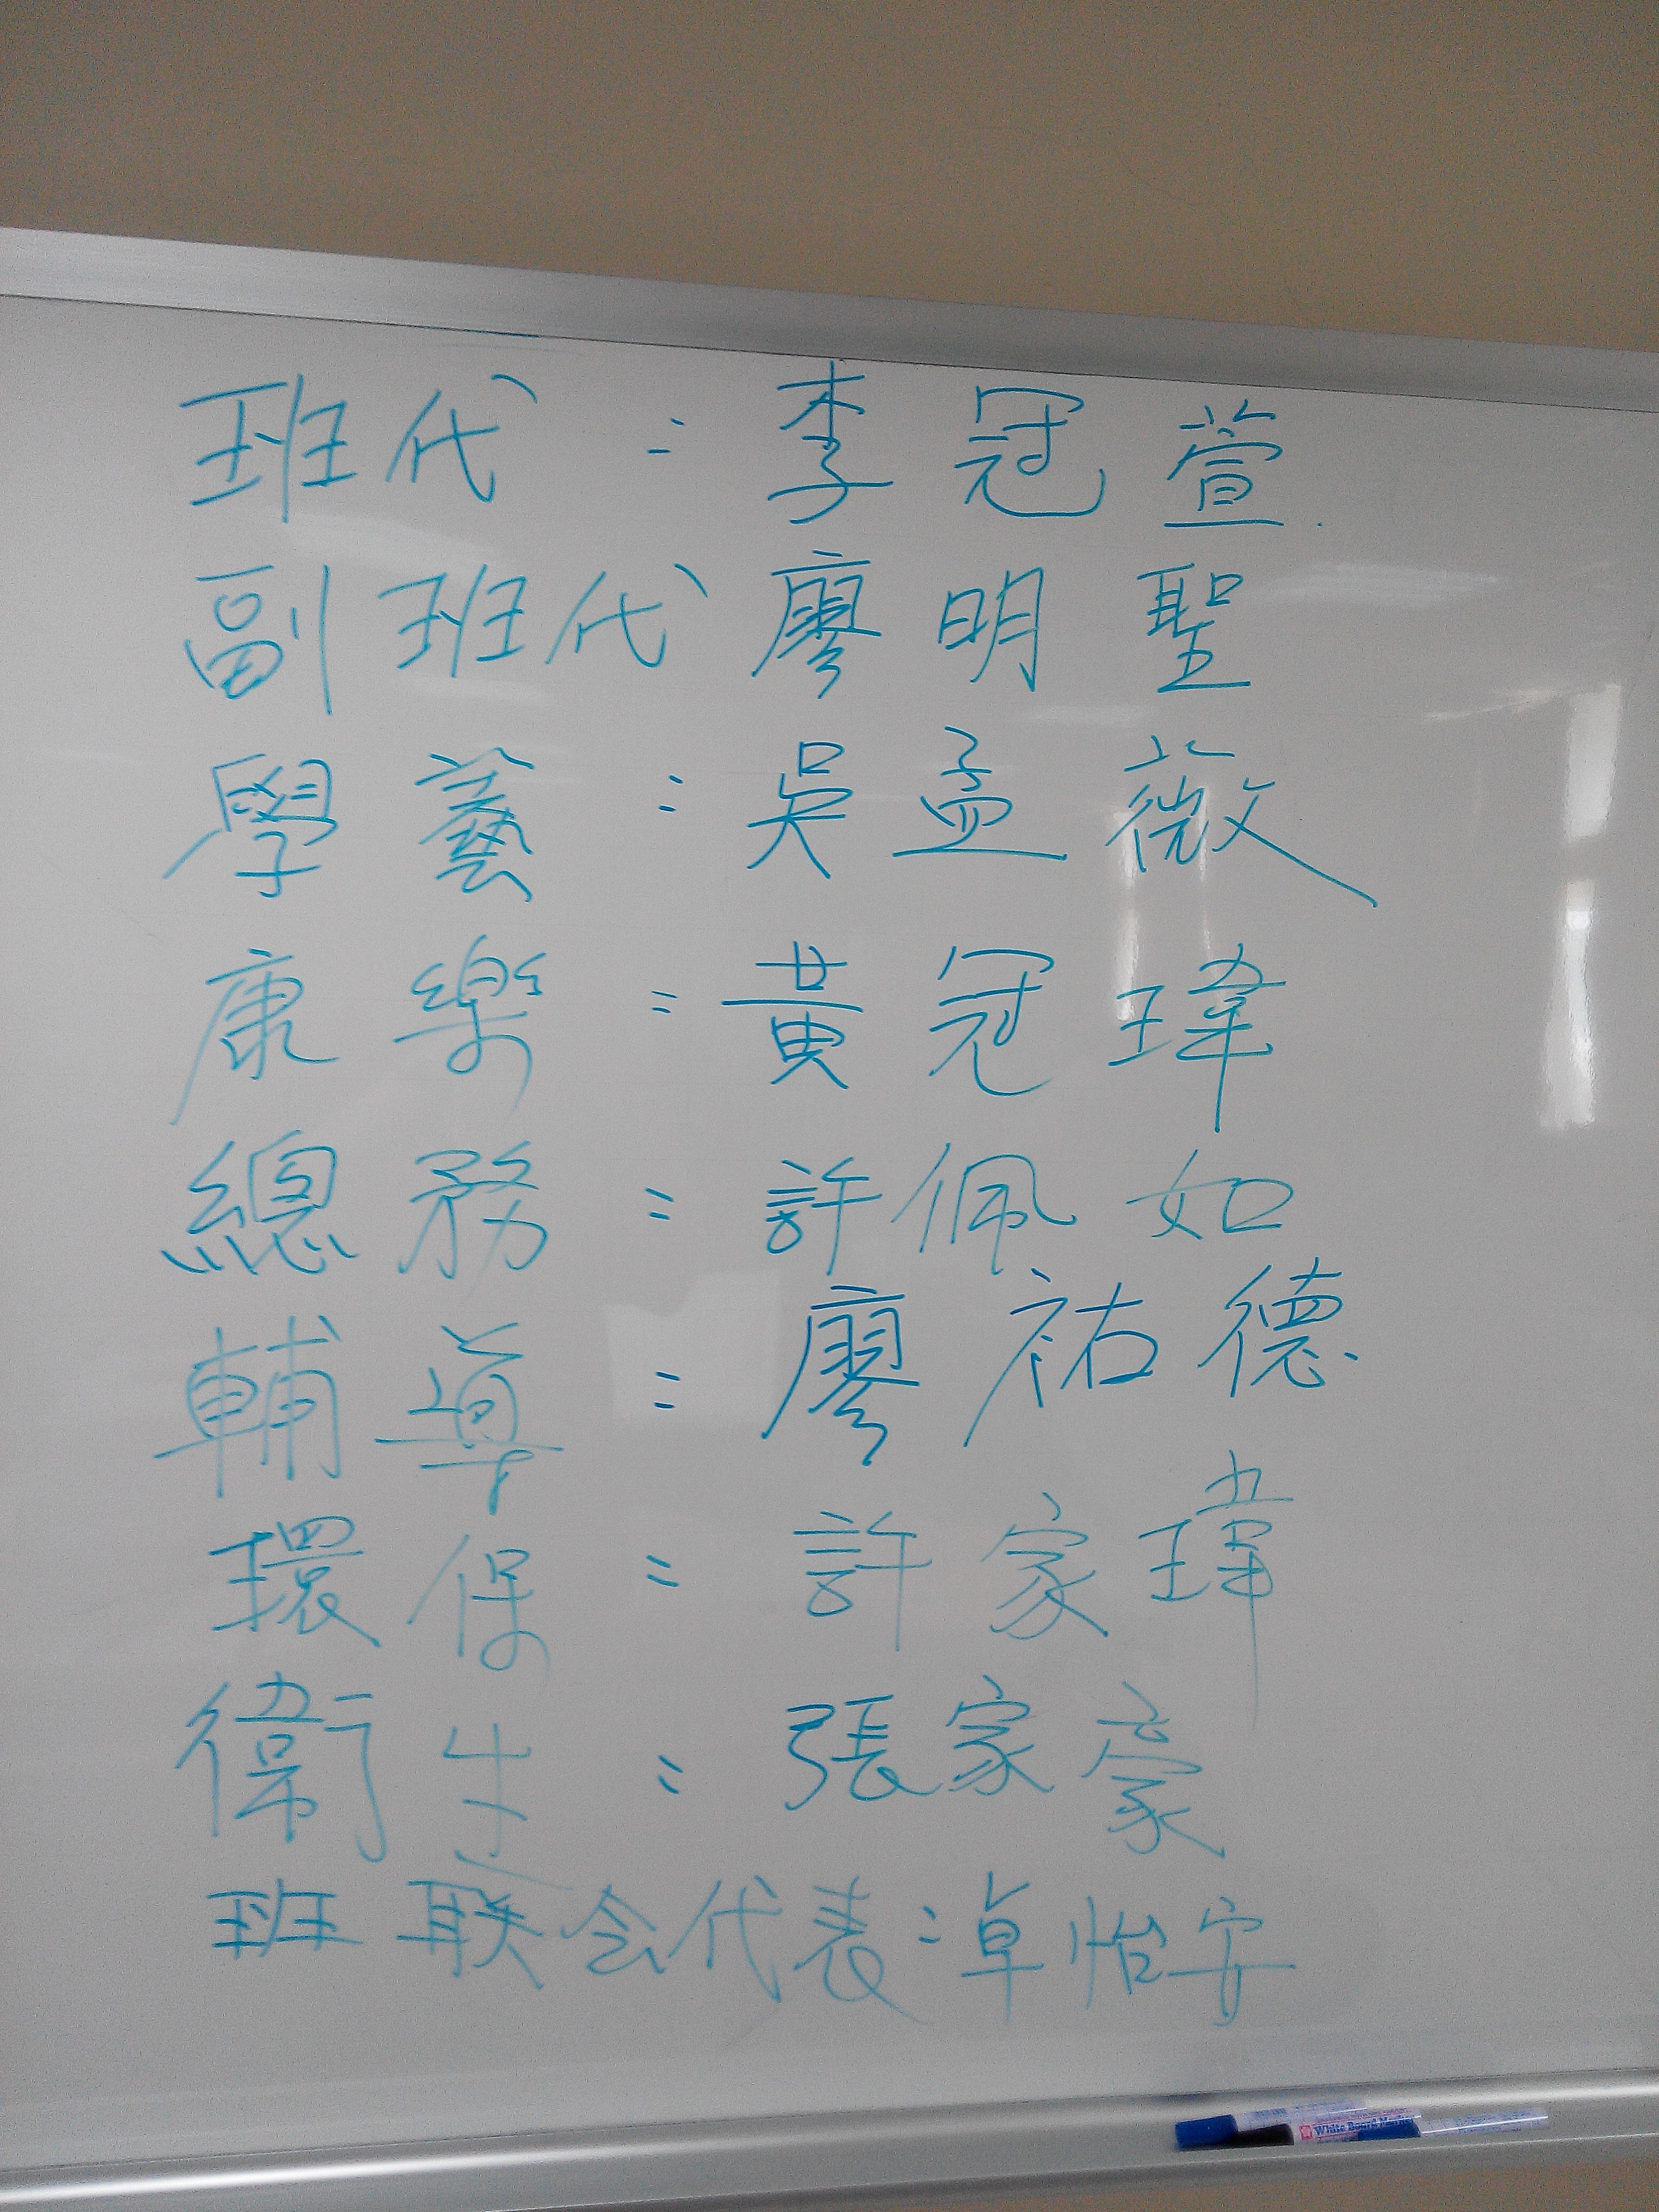 班代：李冠萱.
副班代 廖明聖
學藝：吳孟薇
康樂：黃冠瑋
總務：許佩如
輔導：廖祐德
環保：許家瑋
衛生：張家豪
班联会代表：卓怡安
White Board Marker